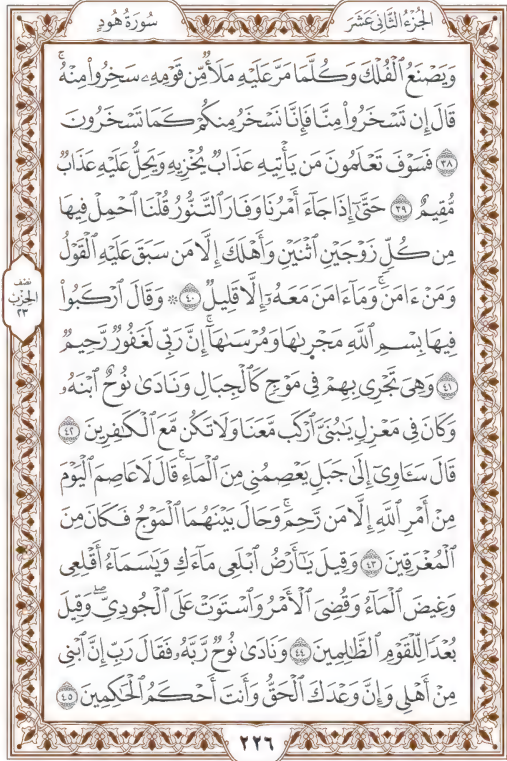 الجُزْءُ الثَّانِي عَشَرَ
سُورَةُ هُودٍ
وَيَصْنَعُ ٱلْفُلْكَ وَكُلَّمَا مَرَّ عَلَيْهِ مَلَأٌ مِّن قَوْمِهِۦ سَخِرُوا۟ مِنْهُ ۚ
قَالَ إِن تَسْخَرُوا۟ مِنَّا فَإِنَّا نَسْخَرُ مِنكُمْ كَمَا تَسْخَرُونَ
٣٨ فَسَوْفَ تَعْلَمُونَ مَن يَأْتِيهِ عَذَابٌ يُخْزِيهِ وَيَحِلُّ عَلَيْهِ عَذَابٌ
مُّقِيمٌ ٣٩ حَتَّىٰٓ إِذَا جَآءَ أَمْرُنَا وَفَارَ ٱلتَّنُّورُ قُلْنَا ٱحْمِلْ فِيهَا
مِن كُلٍّ زَوْجَيْنِ ٱثْنَيْنِ وَأَهْلَكَ إِلَّا مَن سَبَقَ عَلَيْهِ ٱلْقَوْلُ
وَمَنْ ءَامَنَ ۚ وَمَآ ءَامَنَ مَعَهُۥٓ إِلَّا قَلِيلٌ ٤٠ ۞ وَقَالَ ٱرْكَبُوا۟
فِيهَا بِسْمِ ٱللَّهِ مَجْر۪ىٰهَا وَمُرْسَىٰهَآ ۚ إِنَّ رَبِّى لَغَفُورٌ رَّحِيمٌ
٤١ وَهِىَ تَجْرِى بِهِمْ فِى مَوْجٍ كَٱلْجِبَالِ وَنَادَىٰ نُوحٌ ٱبْنَهُۥ
وَكَانَ فِى مَعْزِلٍ يَـٰبُنَىَّ ٱرْكَب مَّعَنَا وَلَا تَكُن مَّعَ ٱلْكَـٰفِرِينَ ٤٢
قَالَ سَـَٔاوِىٓ إِلَىٰ جَبَلٍ يَعْصِمُنِى مِنَ ٱلْمَآءِ ۚ قَالَ لَا عَاصِمَ ٱلْيَوْمَ
مِنْ أَمْرِ ٱللَّهِ إِلَّا مَن رَّحِمَ ۚ وَحَالَ بَيْنَهُمَا ٱلْمَوْجُ فَكَانَ مِنَ
ٱلْمُغْرَقِينَ ٤٣ وَقِيلَ يَـٰٓأَرْضُ ٱبْلَعِى مَآءَكِ وَيَـٰسَمَآءُ أَقْلِعِى
وَغِيضَ ٱلْمَآءُ وَقُضِىَ ٱلْأَمْرُ وَٱسْتَوَتْ عَلَى ٱلْجُودِىِّ ۖ وَقِيلَ
بُعْدًا لِّلْقَوْمِ ٱلظَّـٰلِمِينَ ٤٤ وَنَادَىٰ نُوحٌ رَّبَّهُۥ فَقَالَ رَبِّ إِنَّ ٱبْنِى
مِنْ أَهْلِى وَإِنَّ وَعْدَكَ ٱلْحَقُّ وَأَنتَ أَحْكَمُ ٱلْحَـٰكِمِينَ ٤٥
نصف
الحزب
٢٣
٢٢٦